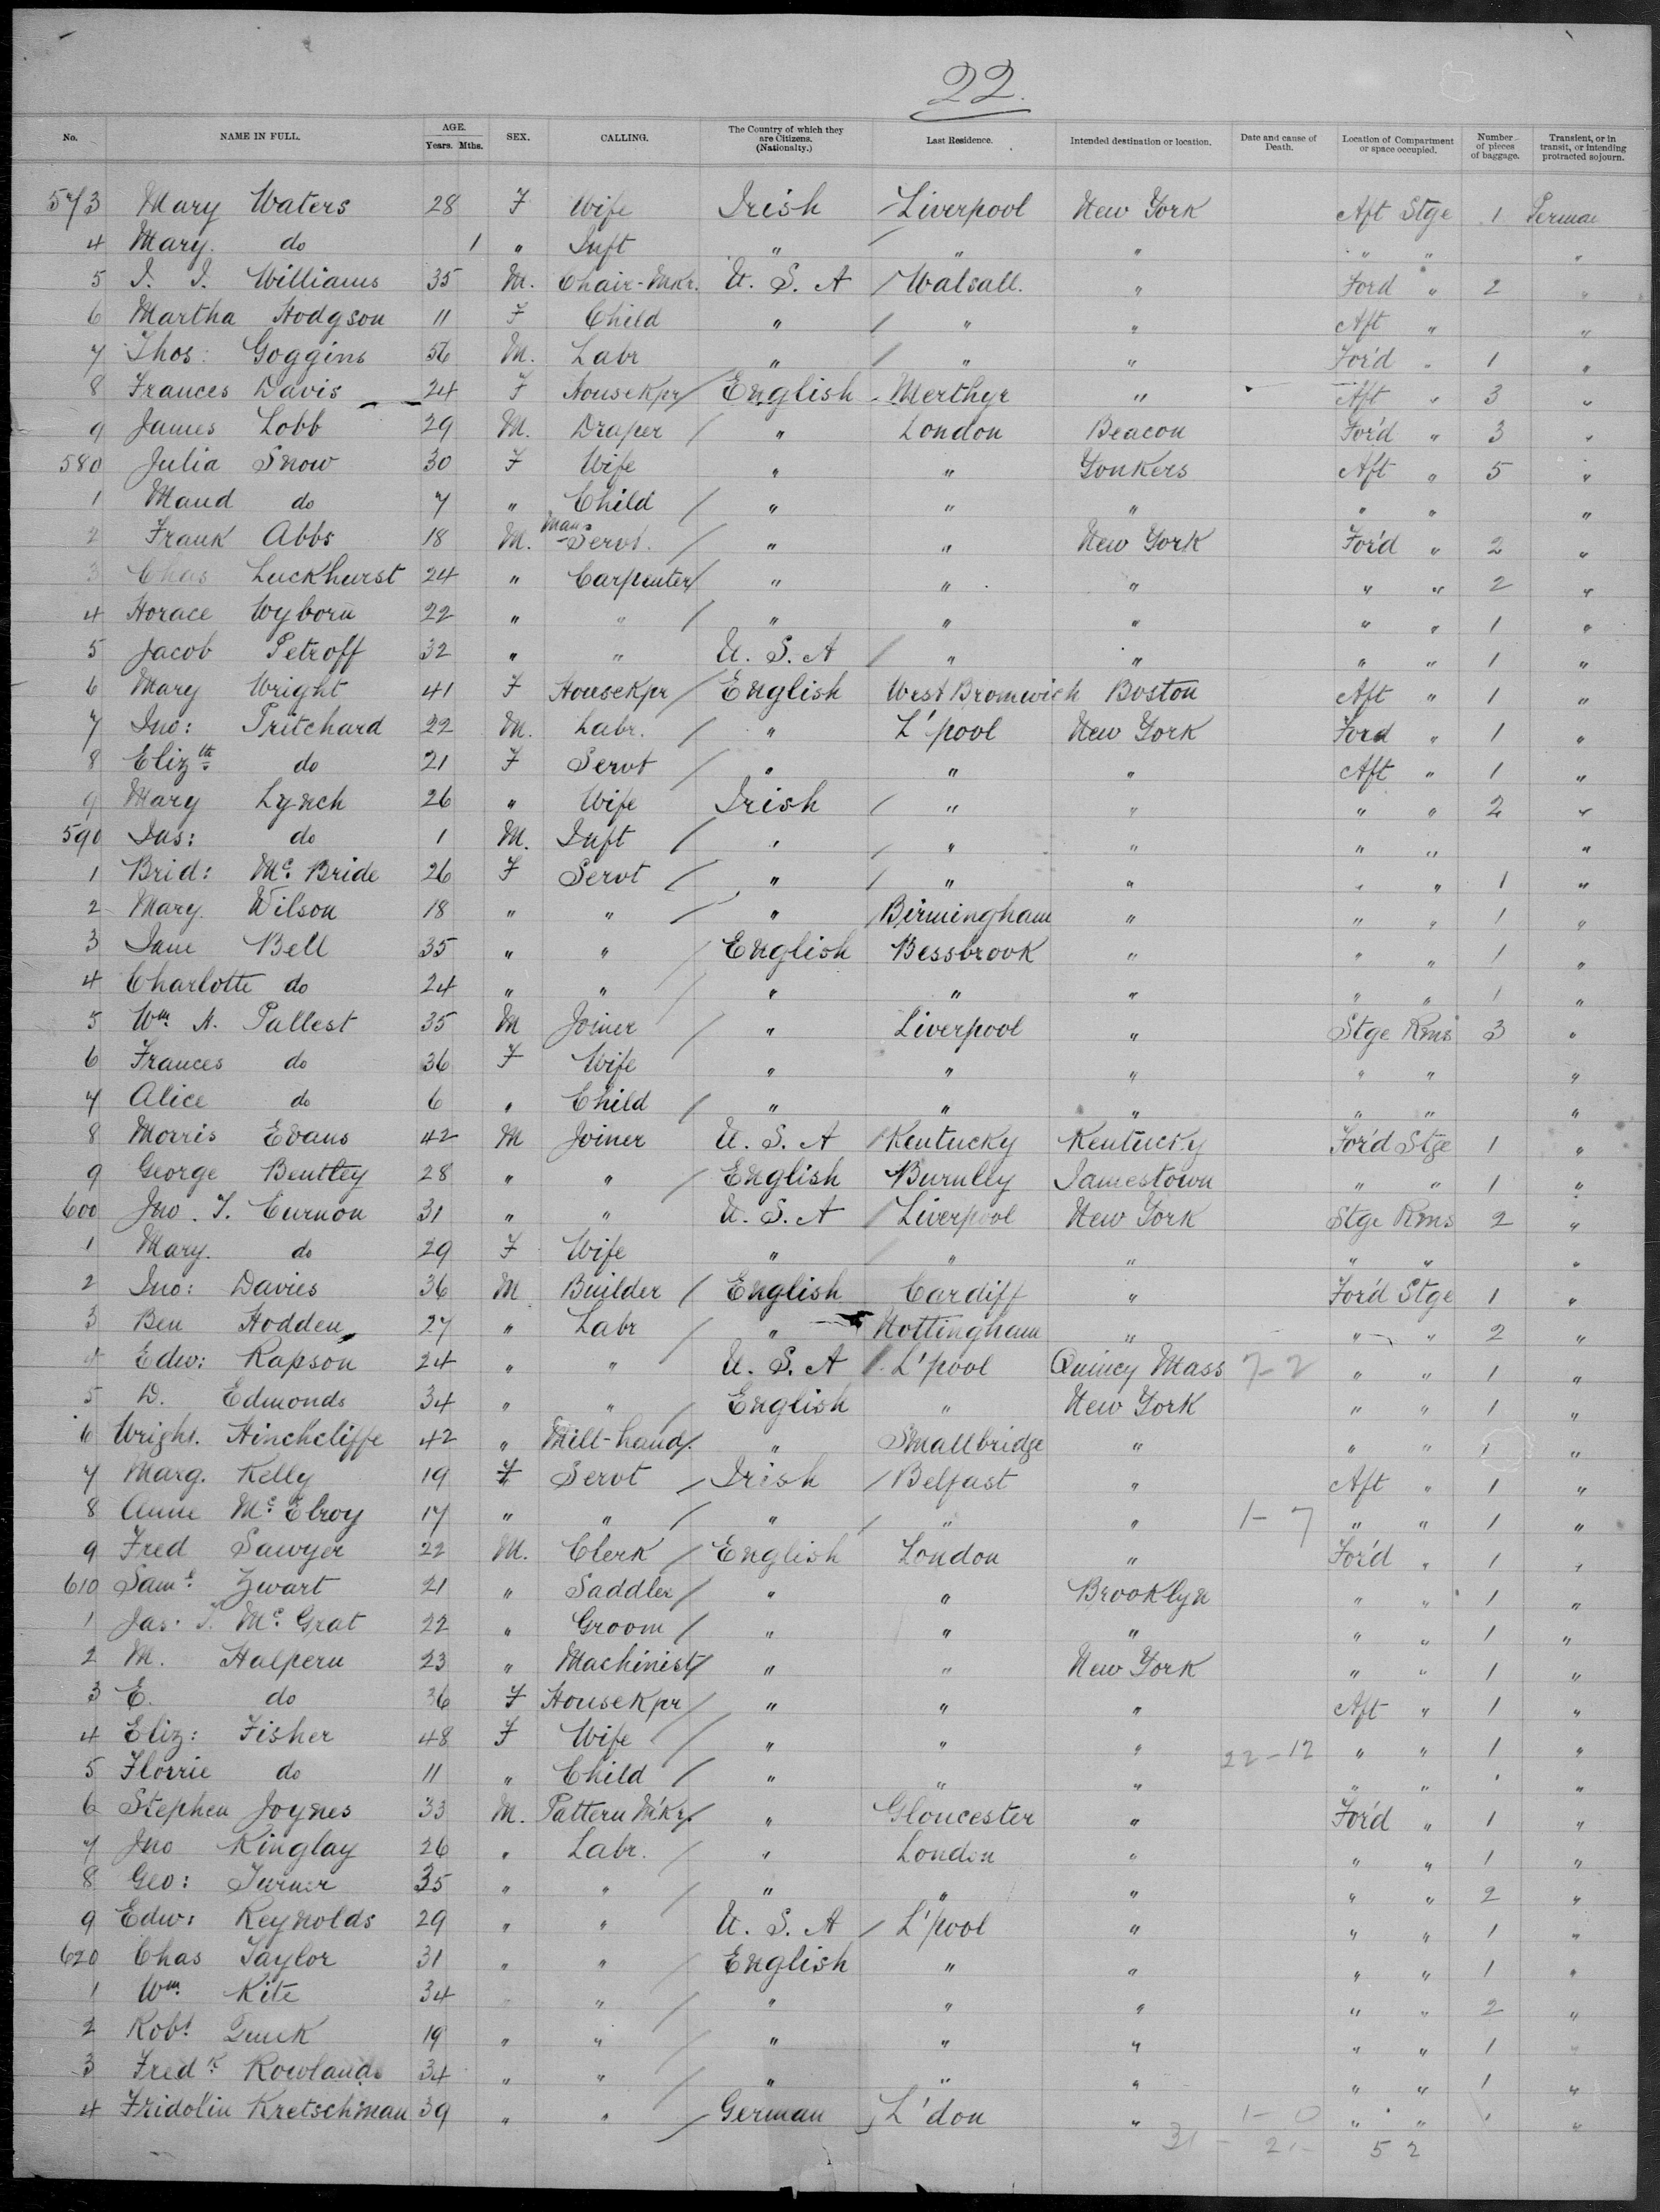 22.
No. NAME IN FULL. AGE. Years. Mths. SEX. CALLING. The Country of which they are Citizens. (Nationalty.) Last Residence. Intended destination or location. Date and cause of Death. Location of Compartment or space occupied. Number of pieces of baggage. Transient, or in transit, or intending protracted sojourn.
573 Mary Waters 28 F Wife Irish / Liverpool New York Aft Stge 1 Perma
4 Mary. do 1 " Inft " / " " " " "
5 I. I. Williams 35 M. Chair-Mkr. U. S. A / Walsall. " Ford " 2 "
6 Martha Hodgson 11 F Child " / " " Aft " "
7 Thos: Goggins 56 M. Labr " / " " For'd " 1 "
8 Frances Davis 24 F HouseKpr / English Merthyr " Aft " 3 "
9 James Lobb 29 M. Draper / " London Beacon For'd " 3 "
580 Julia Snow 30 F Wife " " Yonkers Aft " 5 "
1 Maud do 7 " Child / " " " " " "
2 Frank Abbs 18 M. Man Servt. / " " New York For'd " 2 "
3 Chas Luckhurst 24 " Carpenter / " " " " " 2 "
4 Horace Wyborn 22 " " / " " " " " 1 "
5 Jacob Petroff 32 " " U. S. A / " " " " 1 "
6 Mary Wright 41 F HouseKpr / English West Bromwich Boston Aft " 1 "
7 Jno: Pritchard 22 M. Labr. / " L'pool New York Ford " 1 "
8 Elizth do 21 F Servt / " " " Aft " 1 "
9 Mary Lynch 26 " Wife Irish / " " " " 2 "
590 Jas: do 1 M. Inft / " / " " " " "
1 Brid: Mc Bride 26 F Servt / " / " " " " 1 "
2 Mary. Wilson 18 " " / " Birmingham " " " 1 "
3 Jane Bell 35 " " / English Bessbrook " " " 1 "
4 Charlotte do 24 " " / " " " " " 1 "
5 Wm H. Pallest 35 M Joiner / " Liverpool " Stge Rms 3 "
6 Frances do 36 F Wife " " " " " "
7 Alice do 6 " Child / " " " " " "
8 Morris Evans 42 M Joiner U. S. A / Kentucky Kentucky For'd Stge 1 "
9 George Bentley 28 " " / English Burnlly Jamestown " " 1 "
600 Jno. T. Curnon 31 " " U. S. A / Liverpool New York Stge Rms 2 "
1 Mary. do 29 F Wife " / " " " " "
2 Jno: Davies 36 M Builder / English Cardiff " For'd Stge 1 "
3 Ben Hodden 27 " Labr / " Nottingham " " " 2 "
4 Edw: Rapson 24 " " U. S. A / L'pool Quincy Mass 7-2 " " 1 "
5 D. Edmonds 34 " " / English " New York " " 1 "
6 Wright. Hinchcliffe 42 " Mill-hand / " Smallbridge " " " 1 "
7 Marg. Kelly 19 F Servt / Irish / Belfast " Aft " 1 "
8 Anne Mc Elroy 17 " " / " / " " 1-7 " " 1 "
9 Fred Sawyer 22 M. Clerk / English London " For'd " 1 "
610 Saml Zwart 21 " Saddler / " " Brooklyn " " 1 "
1 Jas. T. Mc Grat 22 " Groom / " " " " " 1 "
2 M. Halpern 23 " Machinist / " " New York " " 1 "
3 E. do 36 F HouseKpr / " " " Aft " 1 "
4 Eliz: Fisher 48 F Wife / " " " 22-12 " " 1 "
5 Florrie do 11 " Child / " " " " " "
6 Stephen Joynes 33 M. Pattern M'kr / " Gloucester " For'd " 1 "
7 Jno Kinglay 26 " Labr. / " London " " " 1 "
8 Geo: Turner 35 " " / " " " " " 2 "
9 Edw: Reynolds 29 " " U. S. A / L'pool " " " 1 "
620 Chas Taylor 31 " " / English " " " " 1 "
1 Wm. Kite 34 " / " " " " " 2 "
2 Robt Quick 19 " " / " " " " " 1 "
3 Fredk Rowlands 34 " " / " " " " " 1 "
4 Fridolin Kretschman 39 " " / German / L'don " 1-0 " " 1 "
31 - 21- 52